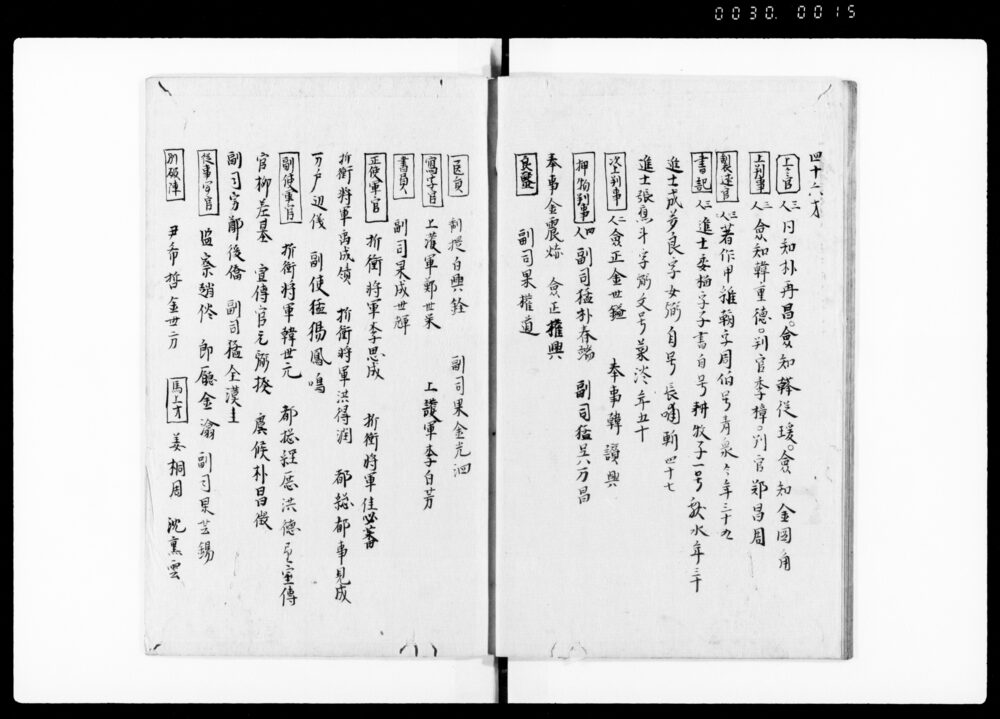 0030. 0015
四十六才
上々官 三人 同知朴再昌。僉知韓後瑗。僉知金図角
上判事 三人 僉知韓重億。判官李樟。判官郑昌周
製述官 三人 著作申維翰字周伯号青泉今年三十九
書記 三人 進士姜栢字子書自号耕牧子一号 水年三十
進士成夢良字女弼自号長嘯軒四十七
進士張應斗字弼文号菊渓年五十
次上判事 二人 僉正金世鎰 奉事韓讃興
押物判事 四人 副司猛朴春端 副司猛呉万昌
奉事金震 僉正權興
良醫 副司果權道
医員 副提白興銓 副司果金光泗
寫字官 上護軍鄭世栄 上護軍李白芳
書員 副司果成世輝
正使軍官 折衝将軍李思成 折衝将軍 必蕃
折衝将軍禹成績 折衝将軍洪得潤 都総都事具成
万戸辺儀 副使猛楊鳳鳴
副使軍官 折衝将軍韓世元 都総経歴洪徳 宣傳
官柳 基 宣傳官元弼揆 虞候朴昌徴
副司勇鄭後僑 副司猛全漢主
従事軍官 監察趙倓 郎廳金瀹 副司果 錫
別破陣 尹希哲金世万 馬上才 姜相周 沈重雲